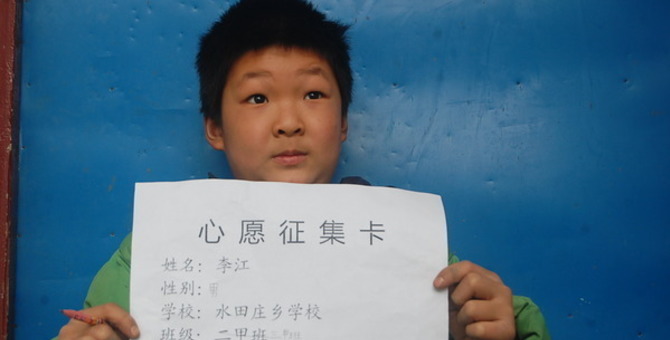 心愿征集卡
姓名：李江
性别：
学校：水田庄乡学校
班级：二甲班